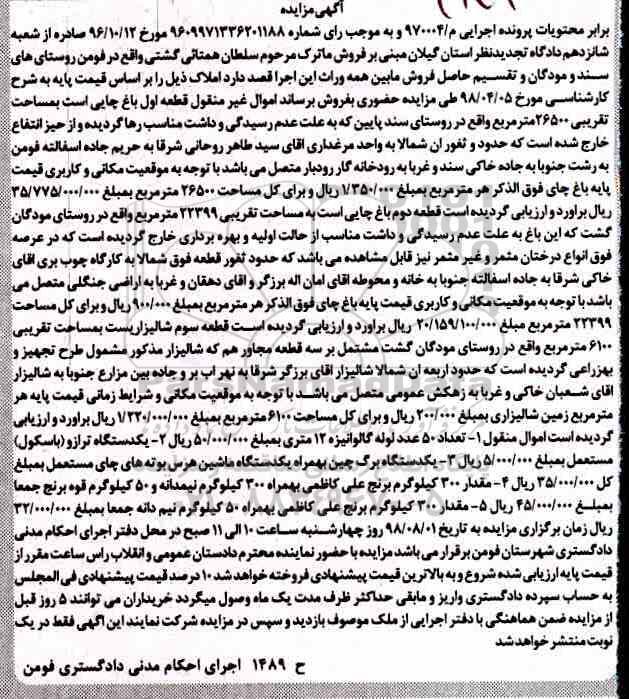 آگهی مزایده
برابر محتویات پرونده اجرایی م/۹۷۰۰۰۴ و به موجب رای شماره ۹۶۰۹۹۷۱۳۳۶۲۰۱۱۸۸ مورخ ۹۶/۱۰/۱۲ صادره از شعبه
شانزدهم دادگاه تجدیدنظر استان گیلان مبنی بر فروش ماترک مرحوم سلطان همتائی گشتی واقع در فومن روستای های
سند و مودگان و تقسیم حاصل فروش مابین همه وراث این اجرا قصد دارد املاک ذیل را بر اساس قیمت پایه به شرح
کارشناسی مورخ ۹۸/۰۴/۰۵ طی مزایده حضوری بفروش برساند اموال غیر منقول قطعه اول باغ چایی است بمساحت
تقریبی ۲۶۵۰۰ متر مربع واقع در روستای سند پایین که به علت عدم رسیدگی و داشت مناسب رها گردیده و از حیز انتفاع
خارج شده است که حدود و ثغور ان شمالا به واحد مرغداری اقای سید طاهر روحانی شرقا به حریم جاده اسفالته فومن
به رشت جنوبا به جاده خاکی سند و غربا به رودخانه گاز رودبار متصل می باشد با توجه به موقعیت مکانی و کاربری قیمت
پایه باغ چای فوق الذکر هر متر مربع بمبلغ ۱/۳۵۰/۰۰۰ ریال و برای کل مساحت ۲۶۵۰۰ متر مربع بمبلغ ۳۵/۷۷۵/۰۰۰/۰۰۰
ریال براورد و ارزیابی گردیده است قطعه دوم باغ چایی است به مساحت تقریبی ۲۲۳۹۹ متر مربع واقع در روستای مودگان
گشت که این باغ به علت عدم رسیدگی و داشت مناسب از حالت اولیه و بهره برداری خارج گردیده است که در عرصه
فوق انواع درختان مثمر و غیر مثمر نیز قابل مشاهده می باشد که حدود ثغور قطعه فوق شمالا به کارگاه چوب بری اقای
خاکی شرقا به جاده اسفالته جنوبا به خانه و محوطه اقای امان اله برزگر و اقای دهقان و غربا به اراضی جنگلی متصل می
باشد با توجه به موقعیت مکانی و کاربری قیمت پایه باغ چای فوق الذکر هر متر مربع بمبلغ ۹۰۰/۰۰۰ ریال و برای کل مساحت
۲۲۳۹۹ متر مربع مبلغ ۲۰/۱۵۹/۱۰۰/۰۰۰ ریال براورد و ارزیابی گردیده است قطعه سوم شالیزاریست بمساحت تقریبی
۶۱۰۰ متر مربع واقع در روستای مودگان گشت مشتمل بر سه قطعه مجاور هم که شالیزار مذکور مشمول طرح تجهیز و
بهزراعی گردیده است که حدود اربعه ان شمالا شالیزار اقای برزگر شرقا به نهر اب بر و جاده بین مزارع جنوبا به شالیزار
اقای شعبان خاکی و غربا به زهکش عمومی متصل می باشد با توجه به موقعیت مکانی و شرایط زمانی قیمت پایه هر
متر مربع زمین شالیزاری بمبلغ ۲۰۰/۰۰۰ ریال و برای کل مساحت ۶۱۰۰ متر مربع بمبلغ ۱/۲۲۰/۰۰۰/۰۰۰ ریال براورد و ارزیابی
گردیده است اموال منقول ۱- تعداد ۵۰ عدد لوله گالوانیزه ۱۲ متری بمبلغ ۵۰/۰۰۰/۰۰۰ ریال ۲- یکدستگاه ترازو (باسکول)
مستعمل بمبلغ ۵/۰۰۰/۰۰۰ ریال ۳- یکدستگاه برگ چین بهمراه یکدستگاه ماشین هرس بوته های چای مستعمل بمبلغ
کل ۳۵/۰۰۰/۰۰۰ ریال ۴- مقدار ۳۰۰ کیلوگرم برنج علی کاظمی بهمراه ۳۰۰ کیلوگرم نیمدانه و ۵۰ کیلوگرم قوه برنج جمعا
بمبلغ ۴۵/۰۰۰/۰۰۰ ریال ۵- مقدار ۳۰۰ کیلوگرم برنج علی کاظمی بهمراه ۵۰ کیلوگرم نیم دانه جمعا بمبلغ ۳۲/۰۰۰/۰۰۰
ریال زمان برگزاری مزایده به تاریخ ۹۸/۰۸/۰۱ روز چهارشنبه ساعت ۱۰ الی ۱۱ صبح در محل دفتر اجرای احکام مدنی
دادگستری شهرستان فومن برقرار می باشد مزایده با حضور نماینده محترم دادستان عمومی و انقلاب راس ساعت مقرر از
قیمت پایه ارزیابی شده شروع و به بالاترین قیمت پیشنهادی فروخته خواهد شد ۱۰ درصد قیمت پیشنهادی فی المجلس
به حساب سپرده دادگستری واریز و مابقی حداکثر ظرف مدت یک ماه وصول میگردد خریداران می توانند ۵ روز قبل
از مزایده ضمن هماهنگی با دفتر اجرایی از ملک موصوف بازدید و سپس در مزایده شرکت نمایند این اگهی فقط در یک
نوبت منتشر خواهد شد
ح ۱۴۸۹ اجرای احکام مدنی دادگستری فومن